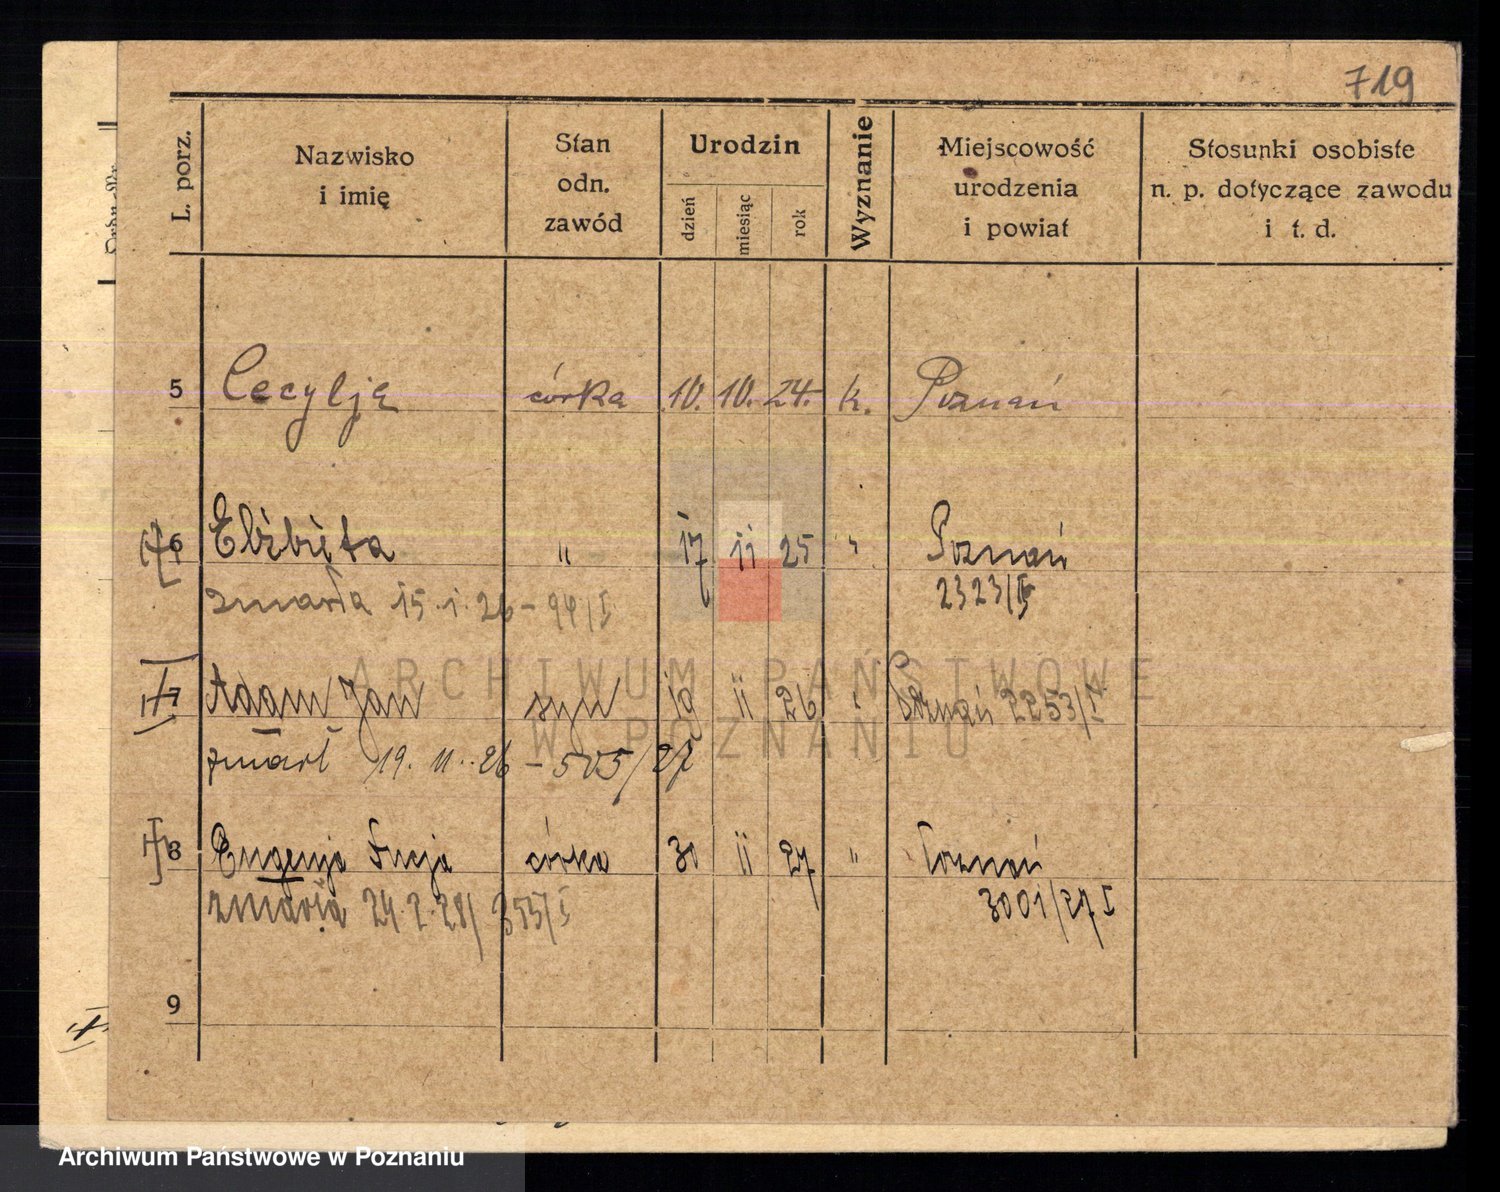 719
L. porz.
Nazwisko
i imię
Stan
odn.
zawód
Urodzin
dzień
miesiąc
rok
Wyznanie
Miejscowość
urodzenia
i powiat
Stosunki osobiste
n. p. dotyczące zawodu
i t. d.
5 Cecylja córka 10. 10. 24. k. Poznań
6 Elżbieta " 17 11 25 " Poznań
zmarła 15.1.26 - 94/I 2323/I
7 Adam Jan syn 10 11 26 " Poznań 2253/I
zmarł 19. 11. 26 - 505/27
8 Eugenja Łucja córka 30 11 27 " Poznań
zmarła 24.2.28/ 355/I 3001/27 I
9
ARCHIWUM PAŃSTWOWE
W POZNANIU
Archiwum Państwowe w Poznaniu